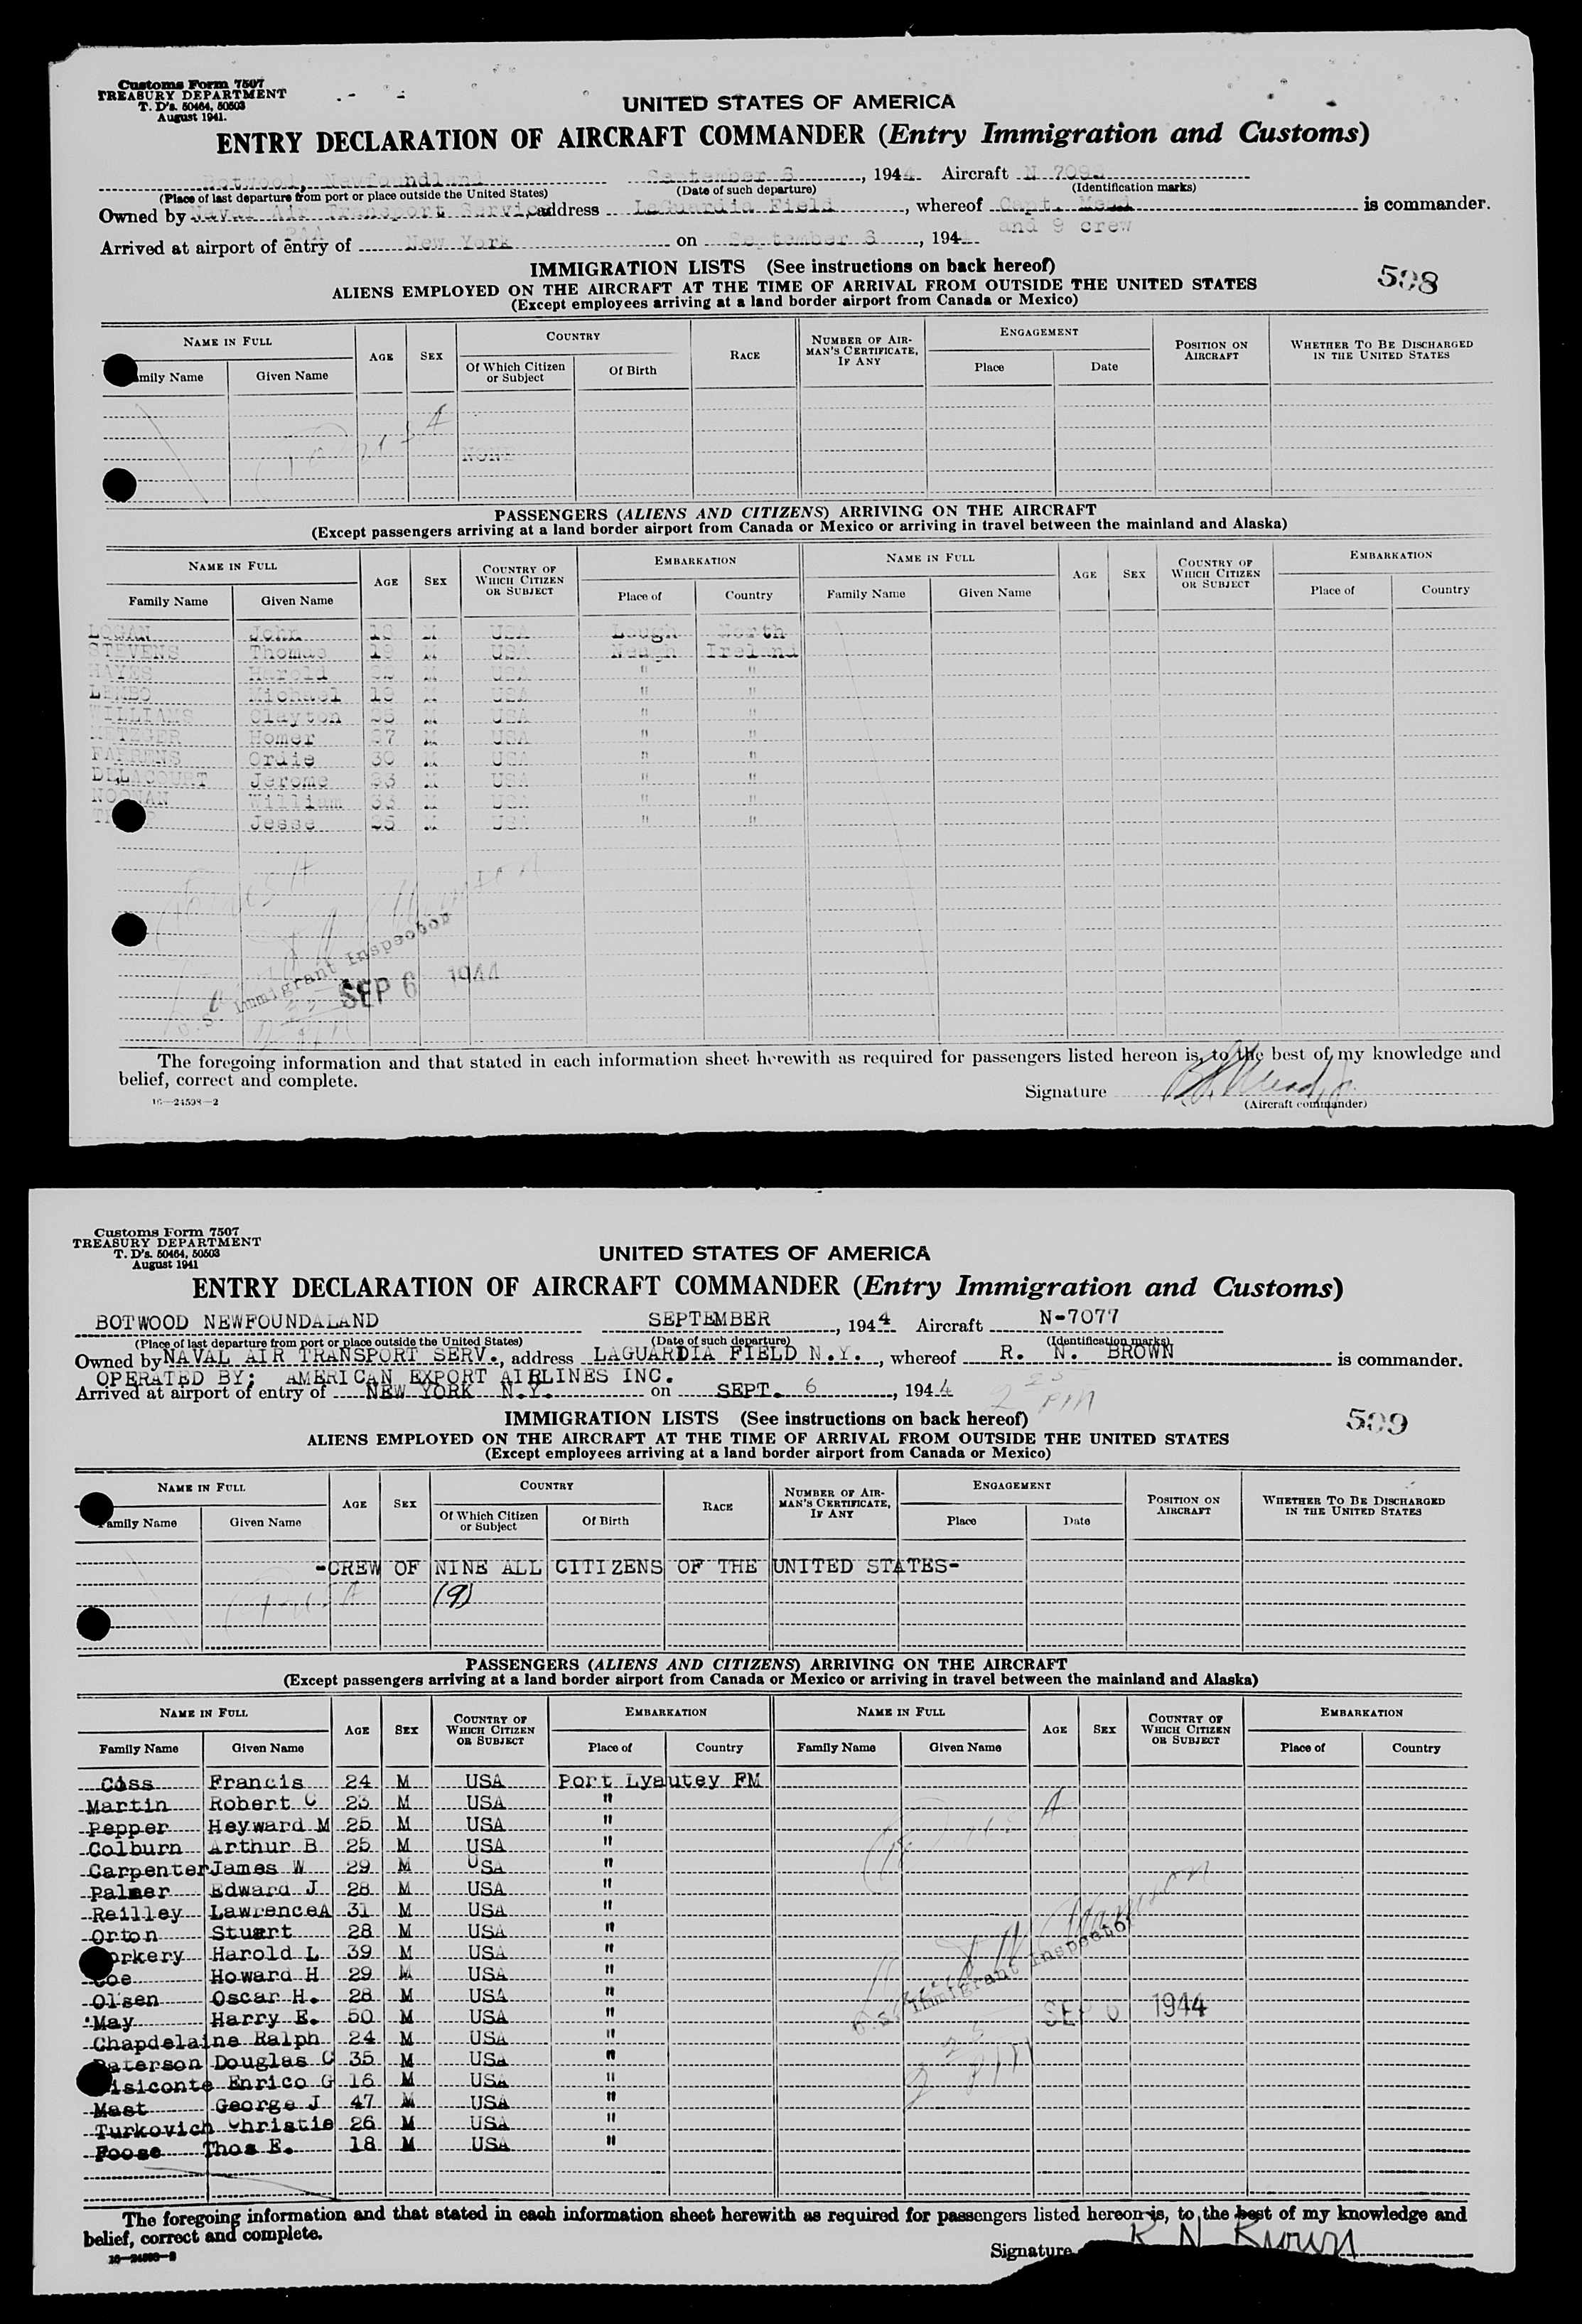 Customs Form 7507
TREASURY DEPARTMENT
T. D's. 50464, 50503
August 1941.
UNITED STATES OF AMERICA
ENTRY DECLARATION OF AIRCRAFT COMMANDER (Entry Immigration and Customs)
Botwood, Newfoundland September 6, 1944 Aircraft N 709
(Place of last departure from port or place outside the United States) (Date of such departure) (Identification marks)
Owned by Naval Air Transport Service, address LaGuardia Field, whereof Capt. Mead is commander.
PAA and 9 crew
Arrived at airport of entry of New York on September 6, 194
IMMIGRATION LISTS (See instructions on back hereof)
598
ALIENS EMPLOYED ON THE AIRCRAFT AT THE TIME OF ARRIVAL FROM OUTSIDE THE UNITED STATES
(Except employees arriving at a land border airport from Canada or Mexico)
NAME IN FULL AGE SEX COUNTRY RACE NUMBER OF AIRMAN'S CERTIFICATE, IF ANY ENGAGEMENT POSITION ON AIRCRAFT WHETHER TO BE DISCHARGED IN THE UNITED STATES
mily Name Given Name Of Which Citizen or Subject Of Birth Place Date
NONE
PASSENGERS (ALIENS AND CITIZENS) ARRIVING ON THE AIRCRAFT
(Except passengers arriving at a land border airport from Canada or Mexico or arriving in travel between the mainland and Alaska)
NAME IN FULL AGE SEX COUNTRY OF WHICH CITIZEN OR SUBJECT EMBARKATION NAME IN FULL AGE SEX COUNTRY OF WHICH CITIZEN OR SUBJECT EMBARKATION
Family Name Given Name Place of Country Family Name Given Name Place of Country
LOGAN John M USA Lough North
STEVENS Thomas 19 M USA Neagh Ireland
HAYES Harold M USA " "
LEMBO Michael 19 M USA " "
WILLIAMS Clayton M USA " "
METZGER Homer M USA " "
FAHRENS Ordie 30 M USA " "
DELACOURT Jerome M USA " "
NOONAN William M USA " "
Jesse M USA " "
U.S. Immigrant Inspector
SEP 6 1944
The foregoing information and that stated in each information sheet herewith as required for passengers listed hereon is, to the best of my knowledge and
belief, correct and complete.
Signature
16—24598—2
(Aircraft commander)
Customs Form 7507
TREASURY DEPARTMENT
T. D's. 50464, 50503
August 1941
UNITED STATES OF AMERICA
ENTRY DECLARATION OF AIRCRAFT COMMANDER (Entry Immigration and Customs)
BOTWOOD NEWFOUNDALAND SEPTEMBER, 1944 Aircraft N-7077
(Place of last departure from port or place outside the United States) (Date of such departure) (Identification marks)
Owned by NAVAL AIR TRANSPORT SERV., address LAGUARDIA FIELD N.Y., whereof R. N. BROWN is commander.
OPERATED BY; AMERICAN EXPORT AIRLINES INC.
Arrived at airport of entry of NEW YORK N.Y. on SEPT. 6, 1944
2 25 PM
IMMIGRATION LISTS (See instructions on back hereof)
599
ALIENS EMPLOYED ON THE AIRCRAFT AT THE TIME OF ARRIVAL FROM OUTSIDE THE UNITED STATES
(Except employees arriving at a land border airport from Canada or Mexico)
NAME IN FULL AGE SEX COUNTRY RACE NUMBER OF AIRMAN'S CERTIFICATE, IF ANY ENGAGEMENT POSITION ON AIRCRAFT WHETHER TO BE DISCHARGED IN THE UNITED STATES
amily Name Given Name Of Which Citizen or Subject Of Birth Place Date
-CREW OF NINE ALL CITIZENS OF THE UNITED STATES-
(9)
PASSENGERS (ALIENS AND CITIZENS) ARRIVING ON THE AIRCRAFT
(Except passengers arriving at a land border airport from Canada or Mexico or arriving in travel between the mainland and Alaska)
NAME IN FULL AGE SEX COUNTRY OF WHICH CITIZEN OR SUBJECT EMBARKATION NAME IN FULL AGE SEX COUNTRY OF WHICH CITIZEN OR SUBJECT EMBARKATION
Family Name Given Name Place of Country Family Name Given Name Place of Country
Ciss Francis 24 M USA Port Lyautey FM
Martin Robert C 23 M USA "
Pepper Heyward M 25 M USA "
Colburn Arthur B 25 M USA "
Carpenter James W 29 M USA "
Palmer Edward J 28 M USA "
Reilley Lawrence A 31 M USA "
Orton Stuart 28 M USA "
orkery Harold L 39 M USA "
Coe Howard H 29 M USA "
Olsen Oscar H. 28 M USA "
May Harry E. 50 M USA "
Chapdelaine Ralph 24 M USA "
aterson Douglas C 35 M USA "
isiconte Enrico G 16 M USA "
Mast George J 47 M USA "
Turkovich Christie 26 M USA "
Foose Thos E. 18 M USA "
U.S. Immigrant Inspector
SEP 6 1944
2 25 PM
The foregoing information and that stated in each information sheet herewith as required for passengers listed hereon is, to the best of my knowledge and
belief, correct and complete.
16—24598—2
Signature R N Brown